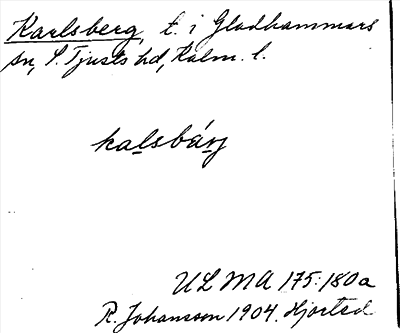 Karlsberg, t. i Gladhammars
sn, S. Tjusts hd, Kalm. l.
kalsbárj
ULMA 175:180a
R. Johansson 1904. Hjorted